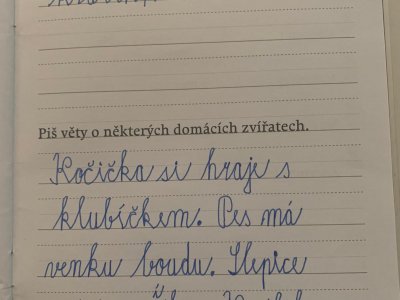 Piš věty o některých domácích zvířatech.
Kočička si hraje s
klubíčkem. Pes má
venku boudu. Slepice